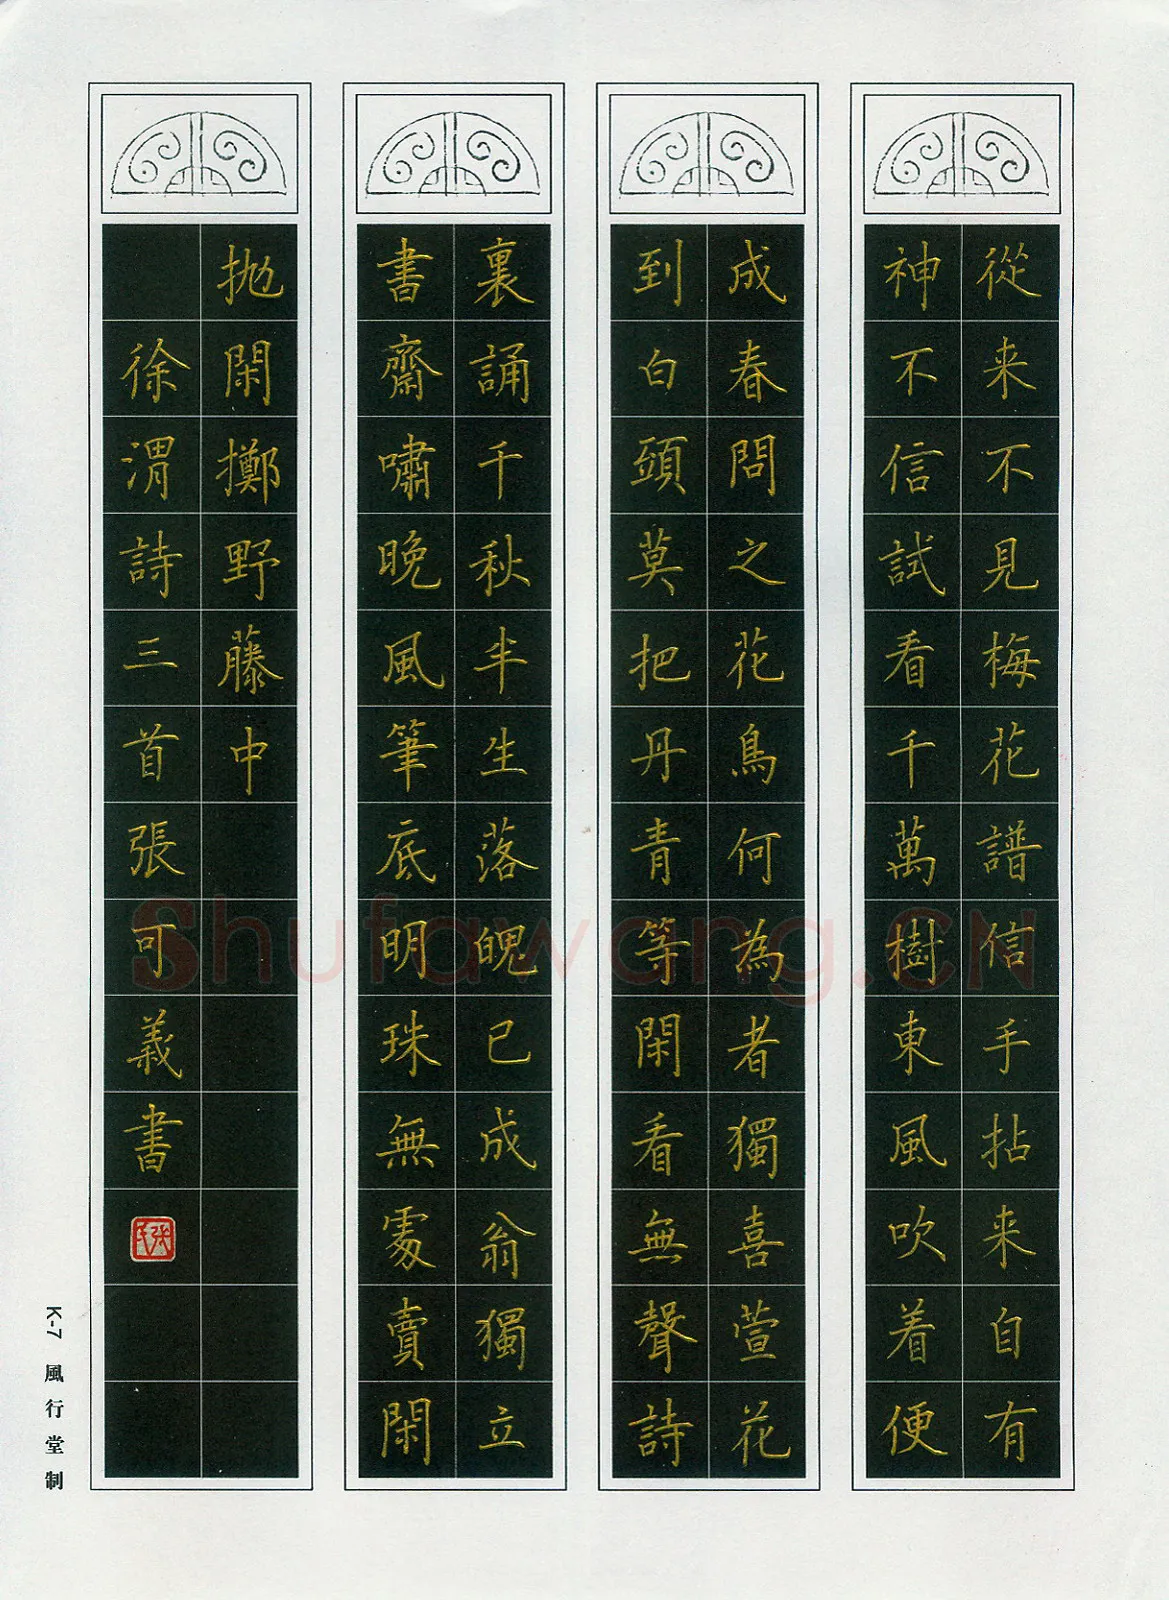 從来不見梅花譜信手拈来自有
神不信試看千萬樹東風吹着便
成春問之花鳥何為者獨喜萱花
到白頭莫把丹青等閑看無聲詩
裏誦千秋半生落魄已成翁獨立
書齋嘯晚風筆底明珠無處賣閑
抛閑擲野藤中
徐渭詩三首張可義書
K-7 風行堂制
Shufawang.CN